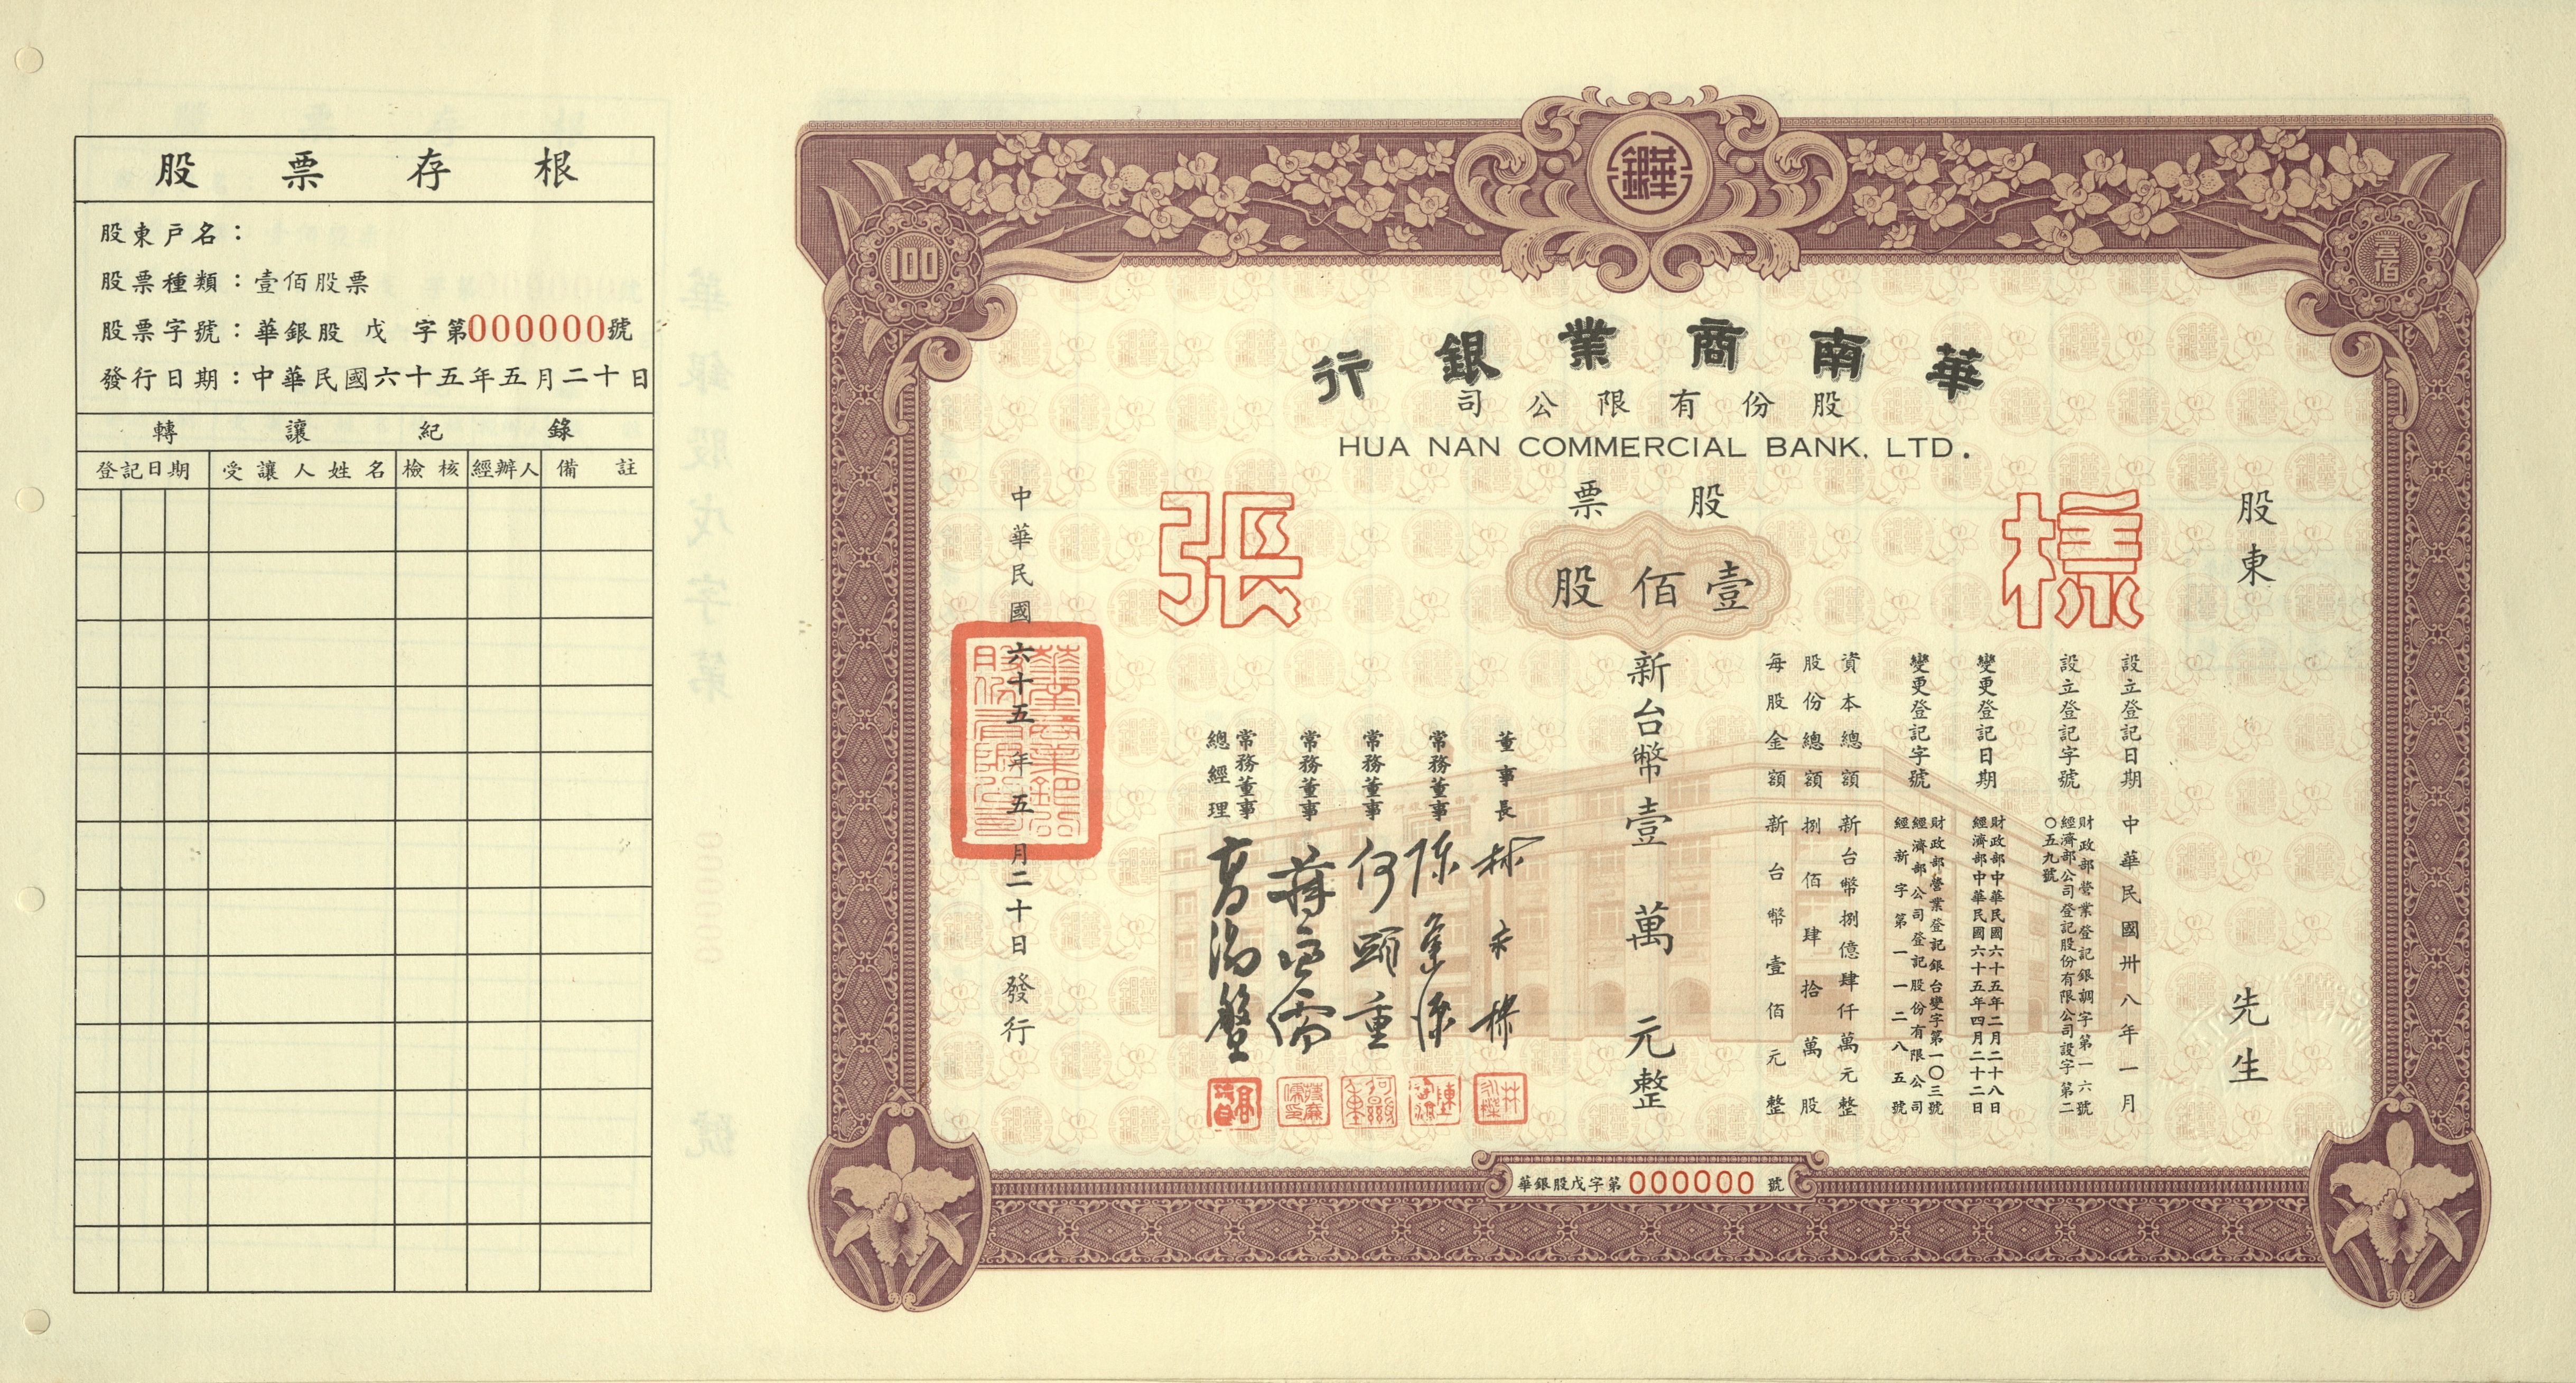 股票存根
股東戶名：
股票種類：壹佰股票
股票字號：華銀股 戊 字第000000號
發行日期：中華民國六十五年五月二十日
轉讓紀錄
登記日期 受讓人姓名 檢核 經辦人 備註
華銀
100
壹佰
華南商業銀行
股份有限公司
HUA NAN COMMERCIAL BANK, LTD.
股票
壹佰股
樣張
股東
先生
設立登記日期 中華民國卅八年一月
設立登記字號 財政部營業登記銀調字第一六號
經濟部公司登記股份有限公司設字第二
〇五九號
變更登記日期 財政部中華民國六十五年二月二十八日
經濟部中華民國六十五年四月二十二日
變更登記字號 財政部營業登記銀台變字第一〇三號
經濟部公司登記股份有限公司
經新字第一一二八五號
資本總額 新台幣捌億肆仟萬元整
股份總額 捌佰肆拾萬股
每股金額 新台幣壹佰元整
新台幣壹萬元整
董事長
常務董事
常務董事
常務董事
常務董事
總經理
中華民國六十五年五月二十日發行
華銀股戊字第000000號